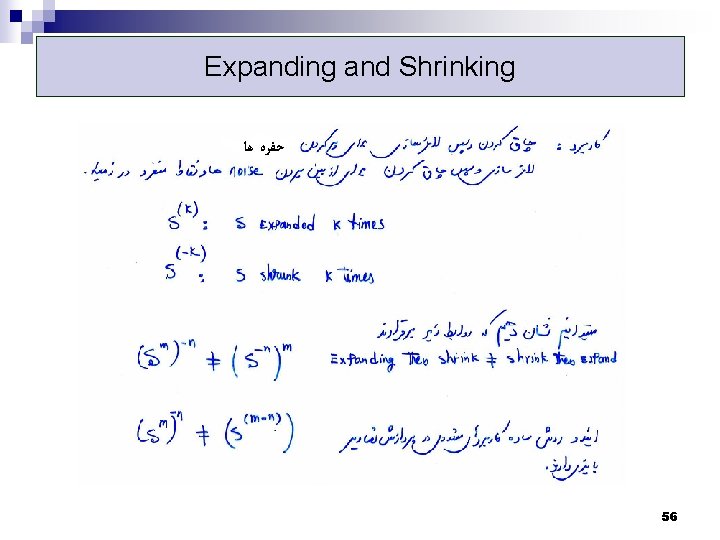 Expanding and Shrinking
کاربرد : چاق کردن و سپس لاغرسازی برای پر کردن حفره ها
لاغر سازی و سپس چاق کردن برای از بین بردن noise ها و نقاط منفرد در زمینه.
S^(K) : S Expanded K times
S^(-K) : S shrunk K times
میتوانیم نشان دهیم که روابط زیر برقرارند
(S^m)^-n ≠ (S^-n)^m Expanding then shrink ≠ shrink then Expand
(S^m)^-n ≠ (S^(m-n))
ایندو روش ساده کاربردهای متعددی در پردازش تصاویر
باینری دارند.
56